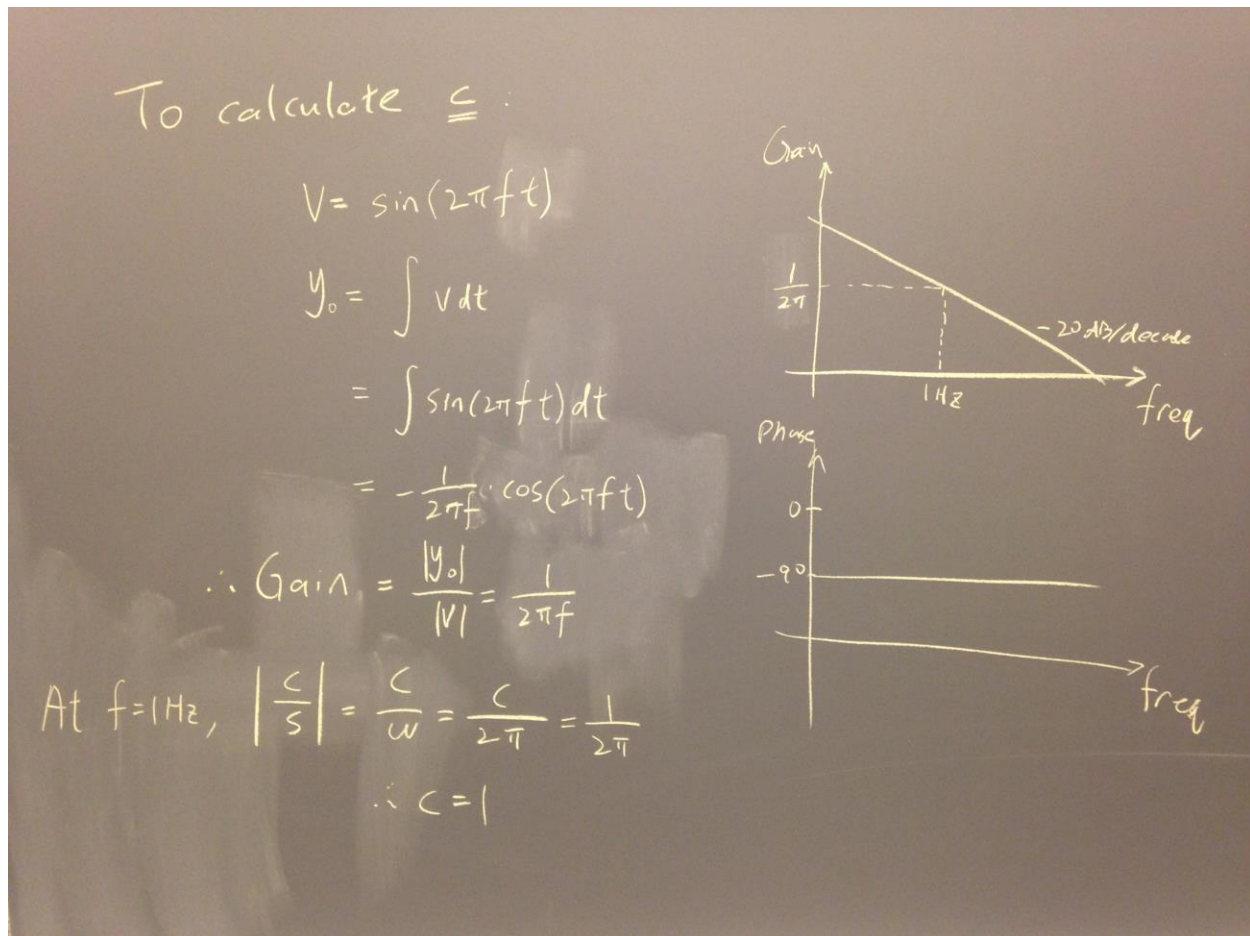 To calculate c :
V = sin(2πft)
y₀ = ∫ v dt
= ∫ sin(2πft) dt
= - 1/2πf · cos(2πft)
∴ Gain = |y₀|/|V| = 1/2πf
At f=1Hz, |c/s| = c/ω = c/2π = 1/2π
∴ c = 1
Gain
1/2π
-20 dB/decade
1Hz
freq
Phase
0
-90
freq